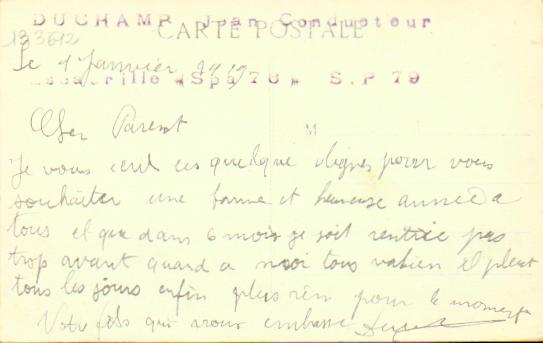 DUCHAMP Jean Conducteur
CARTE POSTALE
133612
Le 1 Janvier 1919
Escadrille "Spa 76" S.P 79
Cher Parent
M
Je vous ecrit ces quelque lignes pour vous
souhaiter une bonne et heureuse année a
tous et que dans 6 mois je soit rentrée pas
trop avant quand a moi tous va bien il pleut
tous les jours enfin plus rien pour le moment
Votre fils qui vous embrasse